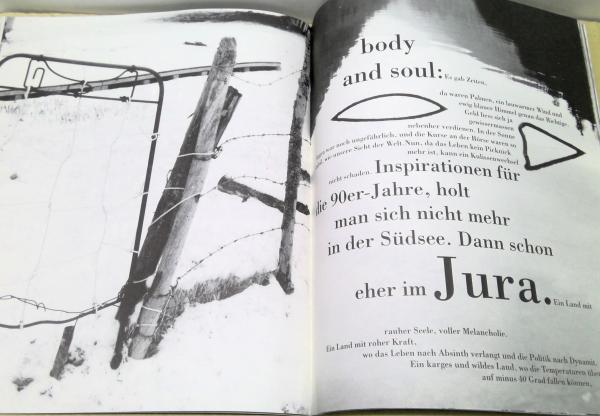 body
and soul: Es gab Zeiten,
da waren Palmen, ein lauwarmer Wind und
ewig blauer Himmel genau das Richtige.
Geld liess sich ja
gewissermassen
nebenher verdienen. In der Sonne
war noch ungefährlich, und die Kurse an der Börse waren so
wie unsere Sicht der Welt. Nun, da das Leben kein Picknick
mehr ist, kann ein Kulissenwechsel
nicht schaden. Inspirationen für
die 90er-Jahre, holt
man sich nicht mehr
in der Südsee. Dann schon
eher im Jura. Ein Land mit
rauher Seele, voller Melancholie.
Ein Land mit roher Kraft,
wo das Leben nach Absinth verlangt und die Politik nach Dynamit.
Ein karges und wildes Land, wo die Temperaturen über
auf minus 40 Grad fallen können,